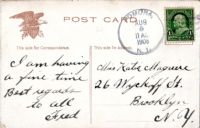 POST CARD
This side for Correspondence.
This side for Address.
AUG
5
11 AM
1908
N.J.
I am having
a fine time
Best regards
to all
Fred
Miss Kate Maguire
26 Wyckoff St.
Brooklyn
N.Y.